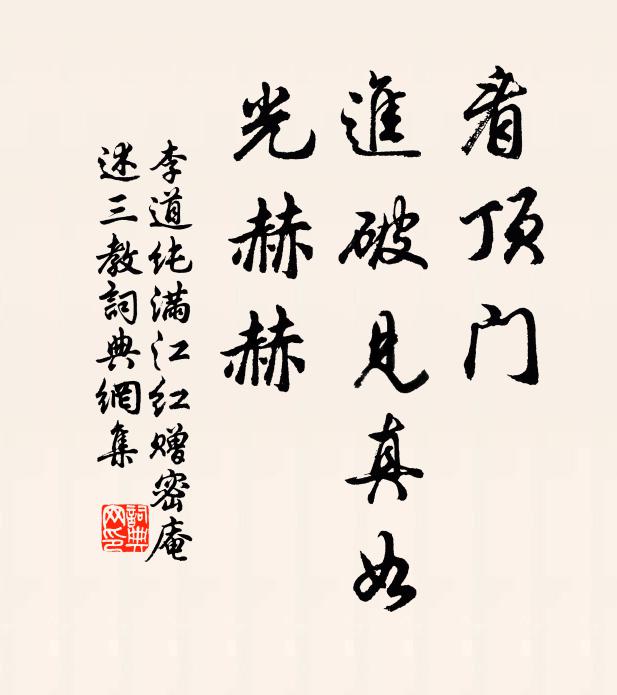 看顶门
進破見真如
光赫赫
李道纯满江红赠密庵
述三教詞典網集
詞典网印